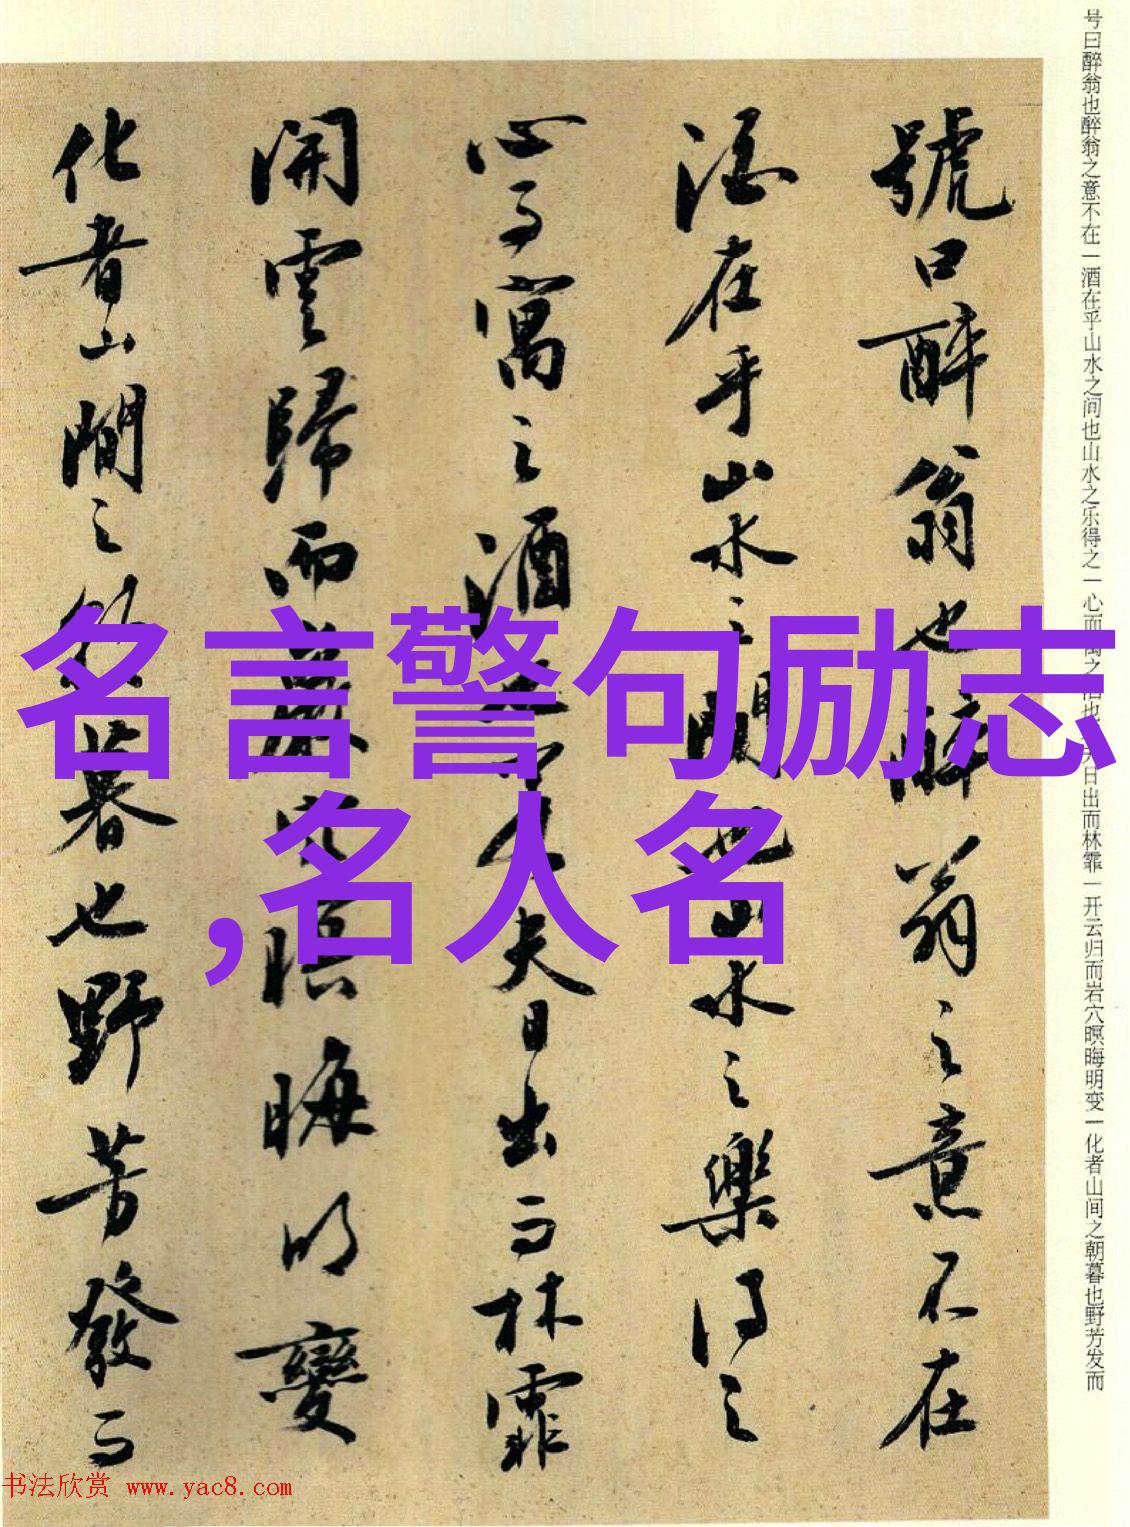 号曰醉翁也醉翁之意不在一酒在乎山水之间也山水之乐得之一心而寓之酒也夫日出而林霏一开云归而岩穴暝晦明变一化者山间之朝暮也野芳发而
號曰醉翁也醉翁之意不在
酒在乎山水之間也山水之樂得之
心而寓之酒也若夫日出而林霏
開雲歸而巖穴暝晦明變
化者山間之朝暮也野芳發而
名言警句励志
,名人名
书法欣赏 www.yac8.com